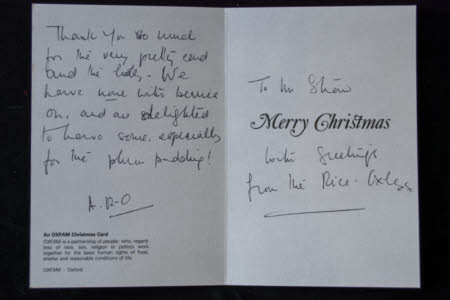 Thank you so much
for the very pretty card
and the holly. We
have none with berries
on, and are delighted
to have some, especially
for the plum pudding!
A.R-O
An OXFAM Christmas Card
OXFAM is a partnership of people who, regard-
less of race, sex, religion or politics work
together for the basic human rights of food,
shelter and reasonable conditions of life.
OXFAM · Oxford
To Mr Shaw
Merry Christmas
with greetings
from the Rice-Oxleys